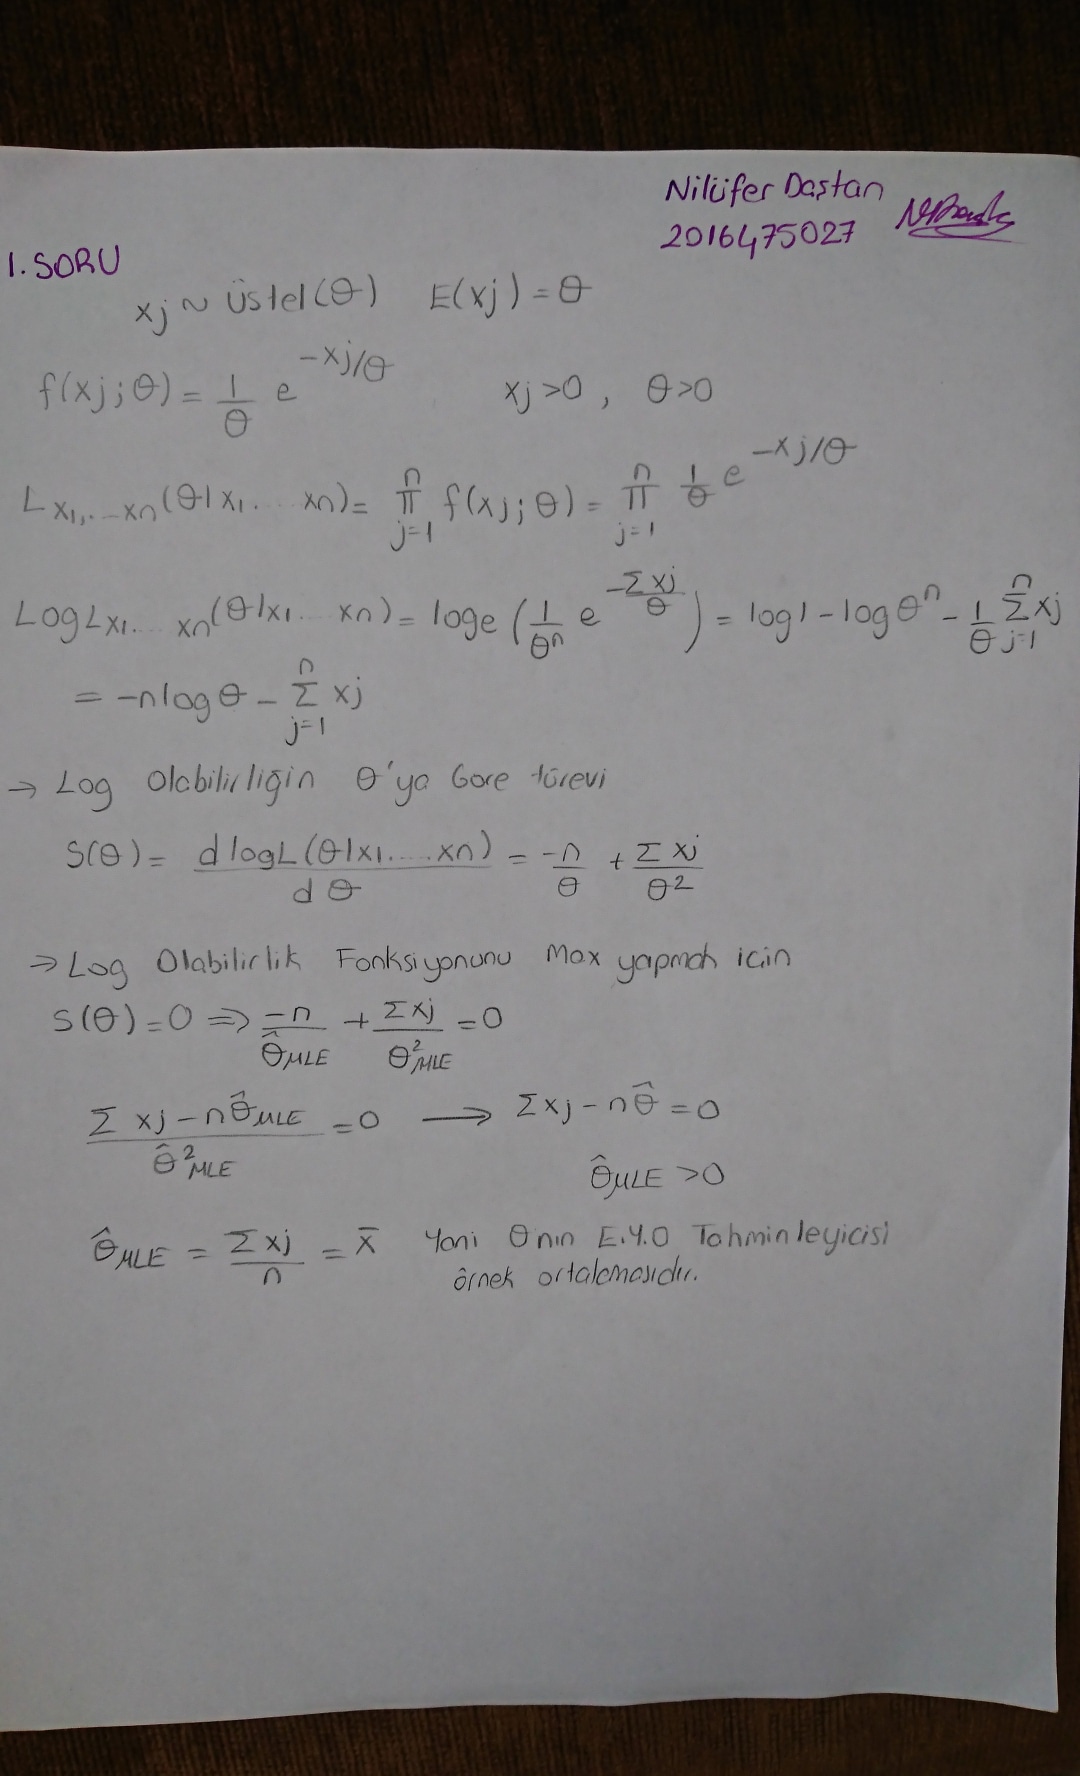 Nilüfer Daştan
2016475027
1. SORU
xj ~ üstel(θ) E(xj) = θ
f(xj; θ) = 1/θ e^(-xj/θ) xj >0 , θ>0
L x1,...xn (θ|x1. ... xn) = ∏_{j=1}^{n} f(xj; θ) = ∏_{j=1}^{n} 1/θ e^(-xj/θ)
LogLx1... xn(θ|x1... xn) = loge (1/θ^n e^(-Σxj/θ)) = log1 - logθ^n - 1/θ Σ_{j=1}^{n} xj
= -nlogθ - Σ_{j=1}^{n} xj
→ Log Olabilirliğin θ'ya Gore türevi
S(θ) = d logL(θ|x1.....xn)/d θ = -n/θ + Σxj/θ²
⇒ Log Olabilirlik Fonksiyonunu Max yapmak için
S(θ) = 0 ⇒ -n/θ̂MLE + Σxj/θ²MLE = 0
Σxj - nθ̂MLE/θ̂²MLE = 0 → Σxj - nθ̂ = 0
θ̂MLE > 0
θ̂MLE = Σxj/n = x̄ Yani θnın E.Y.O Tahminleyicisi
örnek ortalamasıdır.